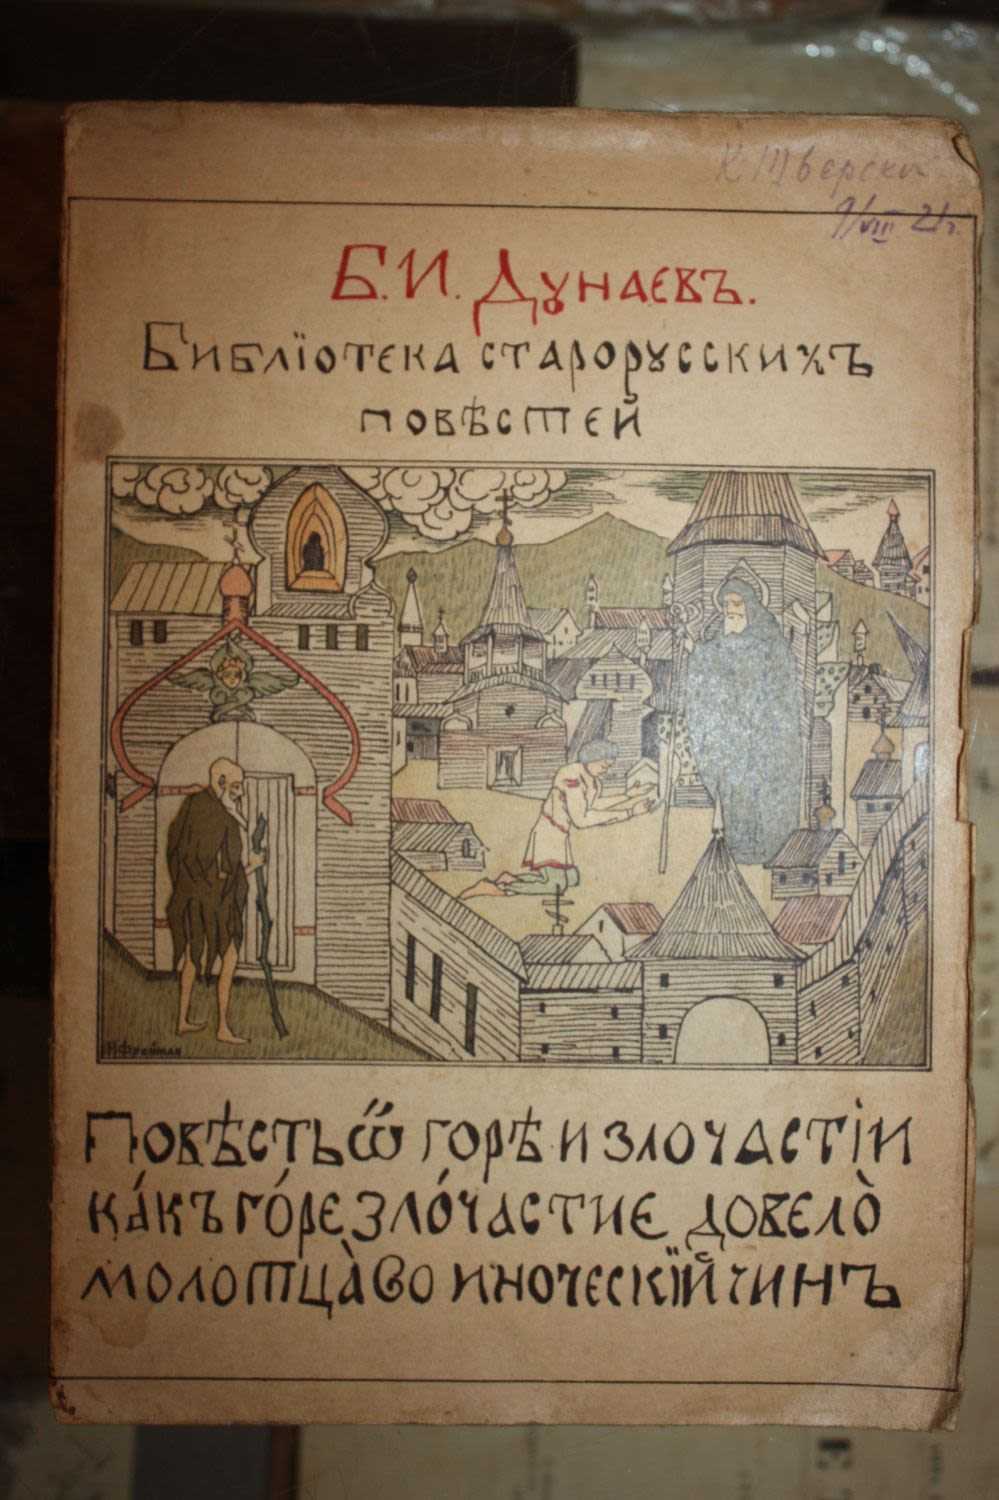 К Тверски
9/VIII 21г.
Б.И. Дꙋнаєвъ.
Библїотєка старорꙋсскихъ
повѣстєй
Н Фрейман
Повѣсть ѿ горѣ и злочастїи
ка́къ го́рє зло́частиє довєло̀
молотца̀ во иночєскїй чинъ